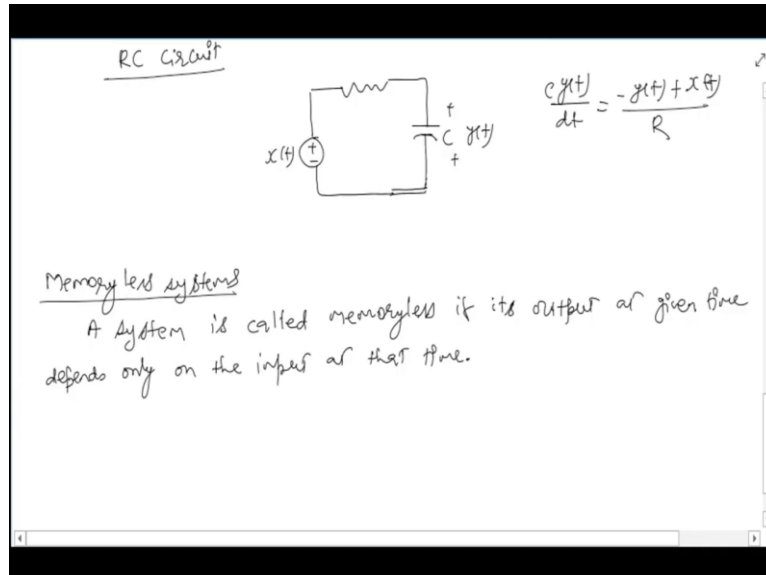 RC Circuit
x(t)
+
-
+
C y(t)
+
c y(t)/dt = -y(t) + x(t)/R
Memoryless systems
A system is called memoryless if its output at given time
depends only on the input at that time.